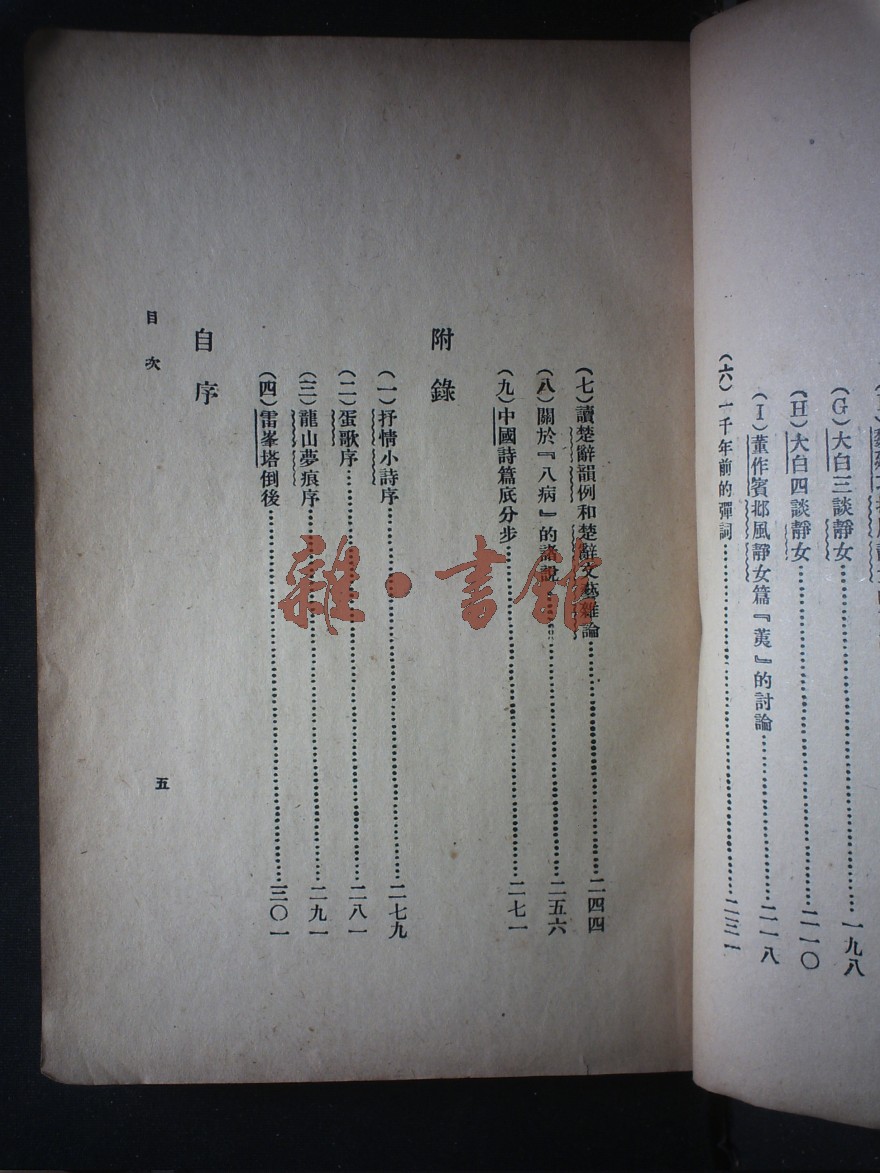 (G)大白三談靜女……一九八
(H)大白四談靜女……二一〇
(I)董作賓邶風靜女篇『荑』的討論……二一八
(六)一千年前的彈詞……二三一
(七)讀楚辭韻例和楚辭文藝雜論……二四四
(八)關於『八病』的諸說……二五六
(九)中國詩篇底分步……二七一
附錄
(一)抒情小詩序……二七九
(二)蛋歌序……二八一
(三)龍山夢痕序……二九一
(四)雷峯塔倒後……三〇一
自序
目次
五
雜·書館